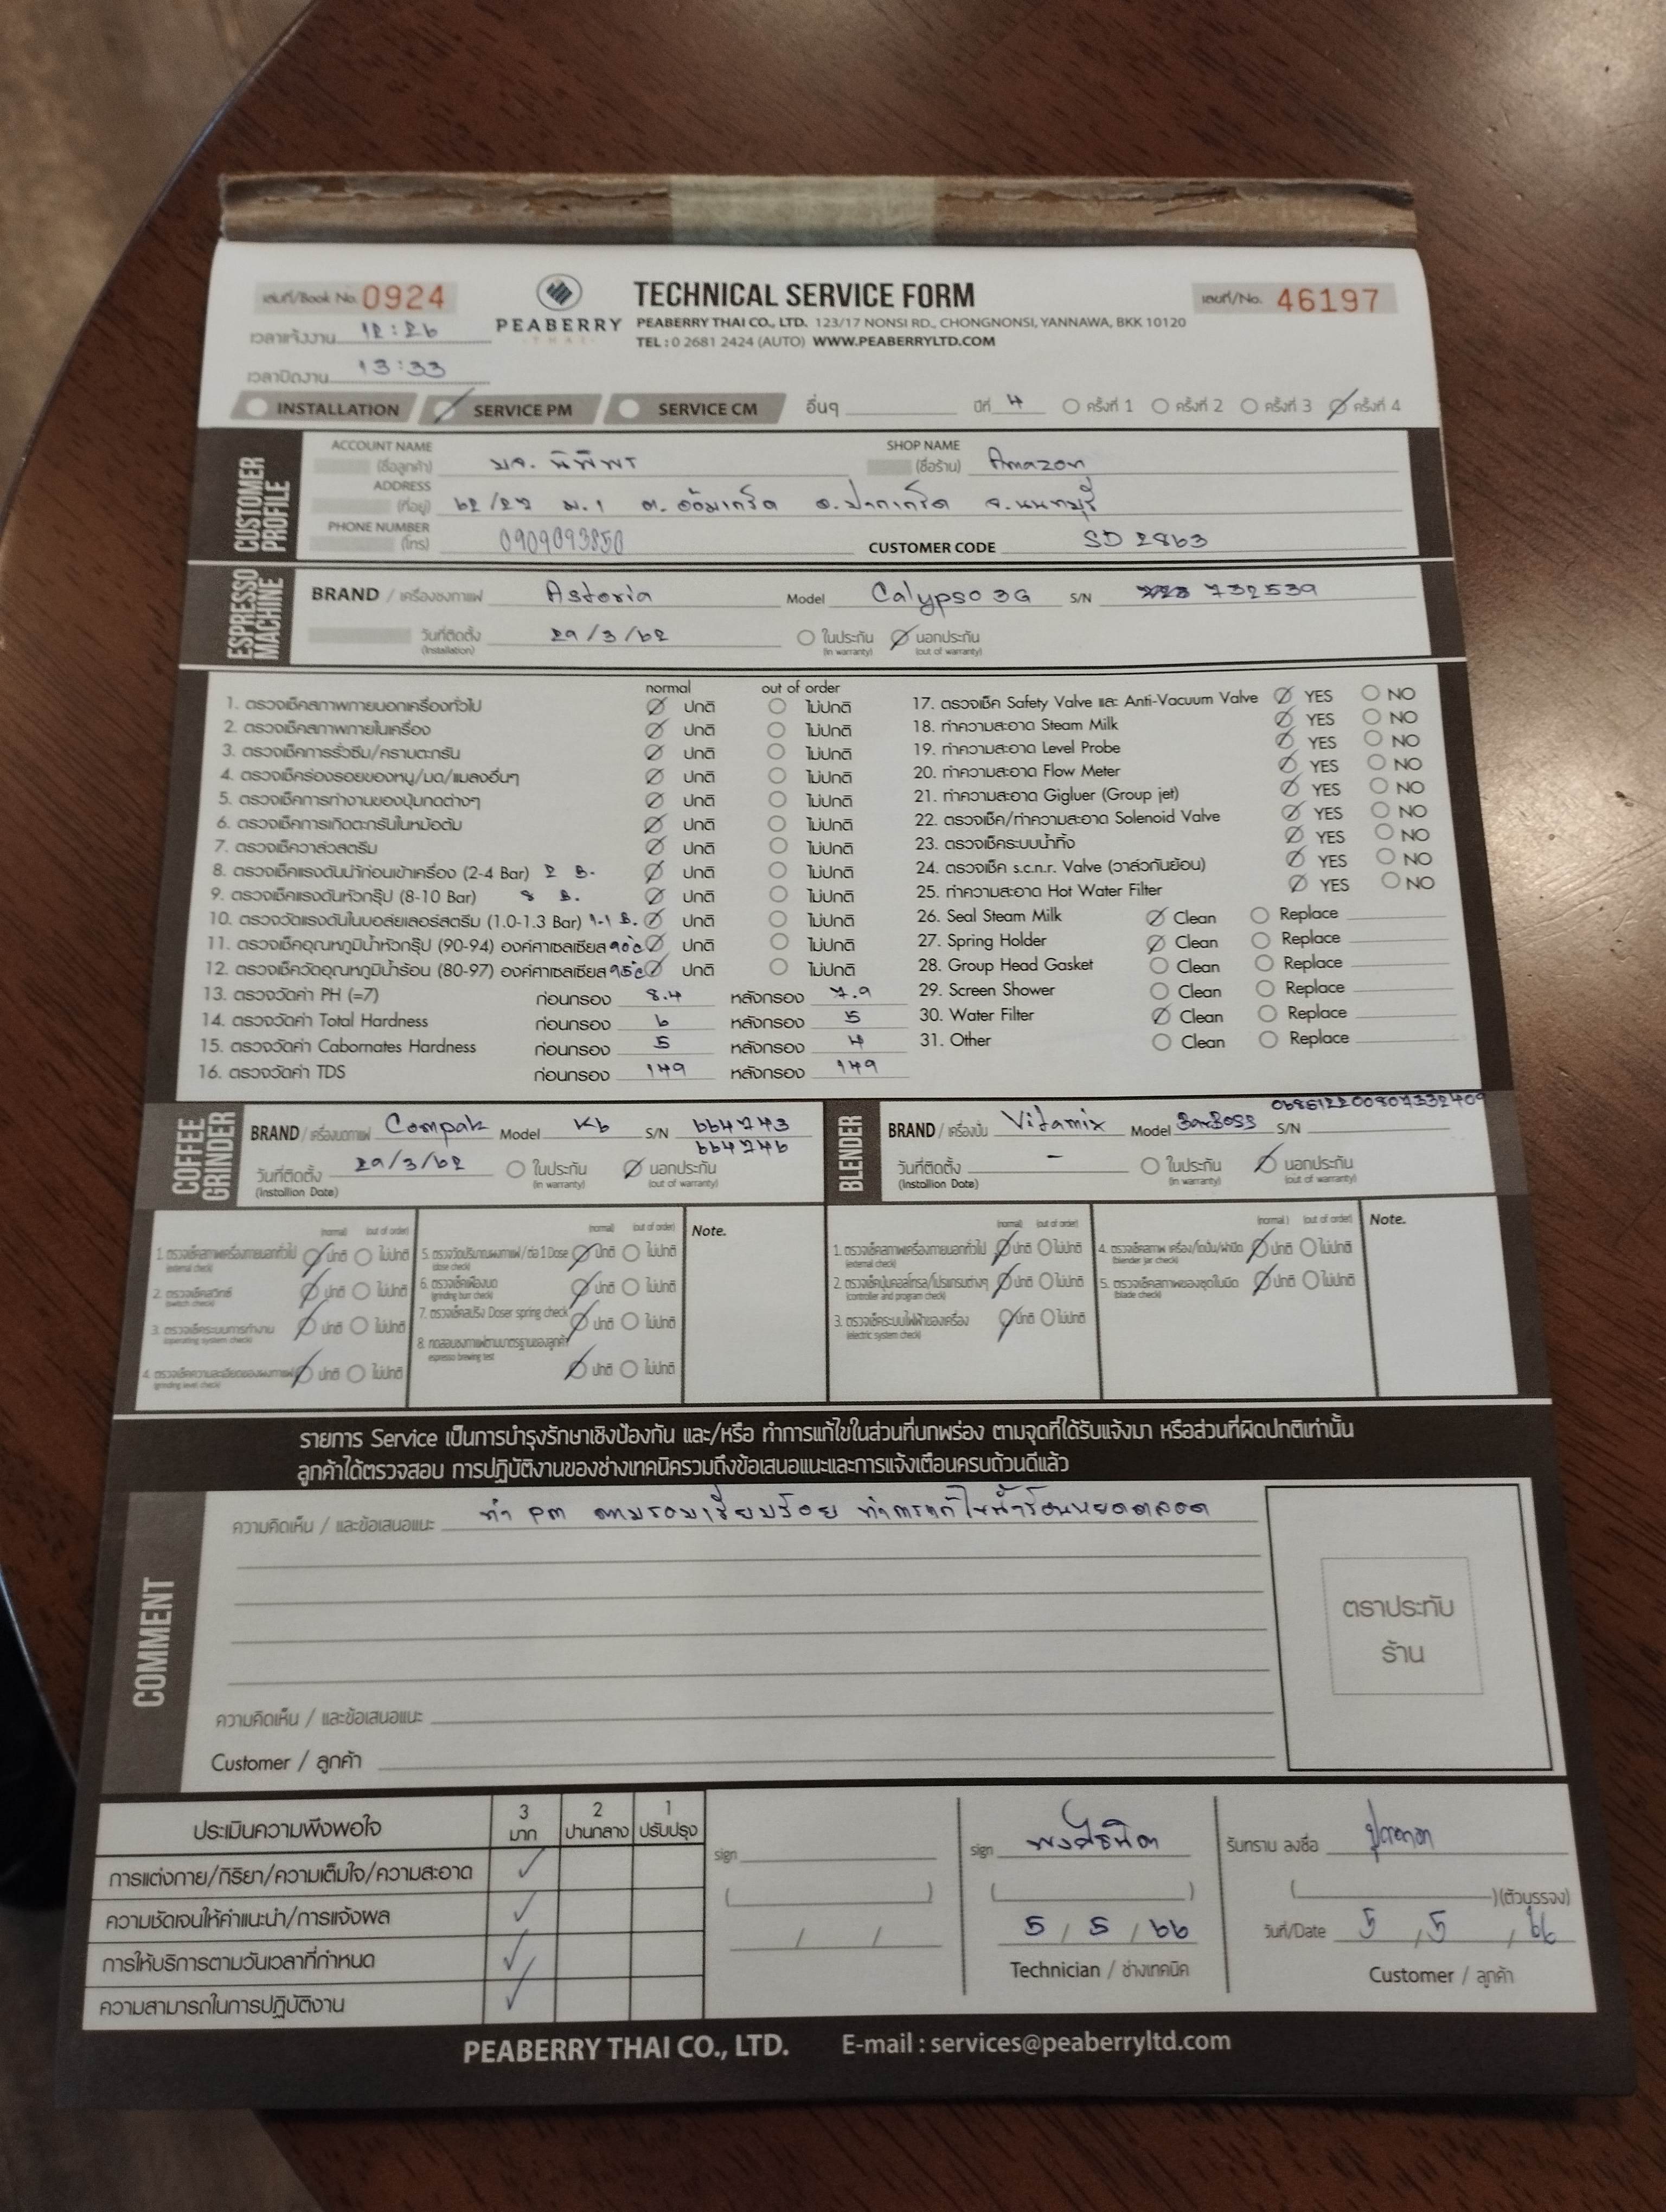 เล่มที่/Book No. 0924
TECHNICAL SERVICE FORM
เลขที่/No. 46197
PEABERRY
THAI
PEABERRY THAI CO., LTD. 123/17 NONSI RD., CHONGNONSI, YANNAWA, BKK 10120
TEL : 0 2681 2424 (AUTO) WWW.PEABERRYLTD.COM
เวลาแจ้งงาน 12:26
เวลาปิดงาน 13:33
INSTALLATION SERVICE PM SERVICE CM อื่นๆ ปีที่ 4 ครั้งที่ 1 ครั้งที่ 2 ครั้งที่ 3 ครั้งที่ 4
CUSTOMER PROFILE
ACCOUNT NAME (ชื่อลูกค้า) บจ. นิพิพร SHOP NAME (ชื่อร้าน) Amazon
ADDRESS (ที่อยู่) 62/27 ม.1 ต.อ้อมเกร็ด อ.ปากเกร็ด จ.นนทบุรี
PHONE NUMBER (โทร) 0909093850 CUSTOMER CODE SD 2863
ESPRESSO MACHINE
BRAND / เครื่องชงกาแฟ Astoria Model Calypso 3G S/N 732539
วันที่ติดตั้ง (Installation) 29/3/62 ในประกัน (in warranty) นอกประกัน (out of warranty)
normal out of order
1. ตรวจเช็คสภาพภายนอกเครื่องทั่วไป ปกติ ไม่ปกติ
2. ตรวจเช็คสภาพภายในเครื่อง ปกติ ไม่ปกติ
3. ตรวจเช็คการรั่วซึม/คราบตะกรัน ปกติ ไม่ปกติ
4. ตรวจเช็คร่องรอยของหนู/มด/แมลงอื่นๆ ปกติ ไม่ปกติ
5. ตรวจเช็คการทำงานของปุ่มกดต่างๆ ปกติ ไม่ปกติ
6. ตรวจเช็คการเกิดตะกรันในหม้อต้ม ปกติ ไม่ปกติ
7. ตรวจเช็ควาล์วสตรีม ปกติ ไม่ปกติ
8. ตรวจเช็คแรงดันน้ำก่อนเข้าเครื่อง (2-4 Bar) 2 B. ปกติ ไม่ปกติ
9. ตรวจเช็คแรงดันหัวกรุ๊ป (8-10 Bar) 8 B. ปกติ ไม่ปกติ
10. ตรวจวัดแรงดันในบอล์ยเลอร์สตรีม (1.0-1.3 Bar) 1.1 B. ปกติ ไม่ปกติ
11. ตรวจเช็คอุณหภูมิน้ำหัวกรุ๊ป (90-94) องศาเซลเซียส 90°c ปกติ ไม่ปกติ
12. ตรวจเช็ควัดอุณหภูมิน้ำร้อน (80-97) องศาเซลเซียส 95°c ปกติ ไม่ปกติ
13. ตรวจวัดค่า PH (=7) ก่อนกรอง 8.4 หลังกรอง 7.9
14. ตรวจวัดค่า Total Hardness ก่อนกรอง 6 หลังกรอง 5
15. ตรวจวัดค่า Cabornates Hardness ก่อนกรอง 5 หลังกรอง 4
16. ตรวจวัดค่า TDS ก่อนกรอง 149 หลังกรอง 149
17. ตรวจเช็ค Safety Valve และ Anti-Vacuum Valve YES NO
18. ทำความสะอาด Steam Milk YES NO
19. ทำความสะอาด Level Probe YES NO
20. ทำความสะอาด Flow Meter YES NO
21. ทำความสะอาด Gigluer (Group jet) YES NO
22. ตรวจเช็ค/ทำความสะอาด Solenoid Valve YES NO
23. ตรวจเช็คระบบน้ำทิ้ง YES NO
24. ตรวจเช็ค s.c.n.r. Valve (วาล์วกันย้อน) YES NO
25. ทำความสะอาด Hot Water Filter YES NO
26. Seal Steam Milk Clean Replace
27. Spring Holder Clean Replace
28. Group Head Gasket Clean Replace
29. Screen Shower Clean Replace
30. Water Filter Clean Replace
31. Other Clean Replace
COFFEE GRINDER
BRAND / เครื่องบดกาแฟ Compak Model K6 S/N 664743
664746
วันที่ติดตั้ง (Installion Date) 29/3/62 ในประกัน (in warranty) นอกประกัน (out of warranty)
BLENDER
BRAND / เครื่องปั่น Vitamix Model BarBoss S/N 068612200807332409
วันที่ติดตั้ง (Installion Date) - ในประกัน (in warranty) นอกประกัน (out of warranty)
(normal) (out of order) (normal) (out of order) Note.
1. ตรวจเช็คสภาพเครื่องภายนอกทั่วไป (external check) ปกติ ไม่ปกติ
2. ตรวจเช็คสวิทซ์ (switch check) ปกติ ไม่ปกติ
3. ตรวจเช็คระบบการทำงาน (operating system check) ปกติ ไม่ปกติ
4. ตรวจเช็คความละเอียดของผงกาแฟ (grinding level check) ปกติ ไม่ปกติ
5. ตรวจวัดปริมาณผงกาแฟ / ต่อ 1 Dose (dose check) ปกติ ไม่ปกติ
6. ตรวจเช็คเฟืองบด (grinding burr check) ปกติ ไม่ปกติ
7. ตรวจเช็คสปริง Doser spring check ปกติ ไม่ปกติ
8. ทดสอบชงกาแฟตามมาตรฐานของลูกค้า espresso brewing test ปกติ ไม่ปกติ
(normal) (out of order) (normal) (out of order) Note.
1. ตรวจเช็คสภาพเครื่องภายนอกทั่วไป (external check) ปกติ ไม่ปกติ
2. ตรวจเช็คปุ่มคอลโทรล/โปรแกรมต่างๆ (controller and program check) ปกติ ไม่ปกติ
3. ตรวจเช็คระบบไฟฟ้าของเครื่อง (electric system check) ปกติ ไม่ปกติ
4. ตรวจเช็คสภาพ เครื่อง/โถปั่น/ฝาปิด (blender jar check) ปกติ ไม่ปกติ
5. ตรวจเช็คสภาพของชุดใบมีด (blade check) ปกติ ไม่ปกติ
รายการ Service เป็นการบำรุงรักษาเชิงป้องกัน และ/หรือ ทำการแก้ไขในส่วนที่บกพร่อง ตามจุดที่ได้รับแจ้งมา หรือส่วนที่ผิดปกติเท่านั้น
ลูกค้าได้ตรวจสอบ การปฏิบัติงานของช่างเทคนิครวมถึงข้อเสนอแนะและการแจ้งเตือนครบถ้วนดีแล้ว
COMMENT
ความคิดเห็น / และข้อเสนอแนะ ทำ PM ตามรอบเรียบร้อย ทำการแก้ไขน้ำร้อนหยดตลอด
ตราประทับ
ร้าน
ความคิดเห็น / และข้อเสนอแนะ
Customer / ลูกค้า
ประเมินความพึงพอใจ 3 มาก 2 ปานกลาง 1 ปรับปรุง
การแต่งกาย/กิริยา/ความเต็มใจ/ความสะอาด
ความชัดเจนให้คำแนะนำ/การแจ้งผล
การให้บริการตามวันเวลาที่กำหนด
ความสามารถในการปฏิบัติงาน
sign
sign
5 / 5 / 66
Technician / ช่างเทคนิค
รับทราบ ลงชื่อ
(ตัวบรรจง)
วันที่/Date 5 , 5 , 66
Customer / ลูกค้า
PEABERRY THAI CO., LTD. E-mail : services@peaberryltd.com